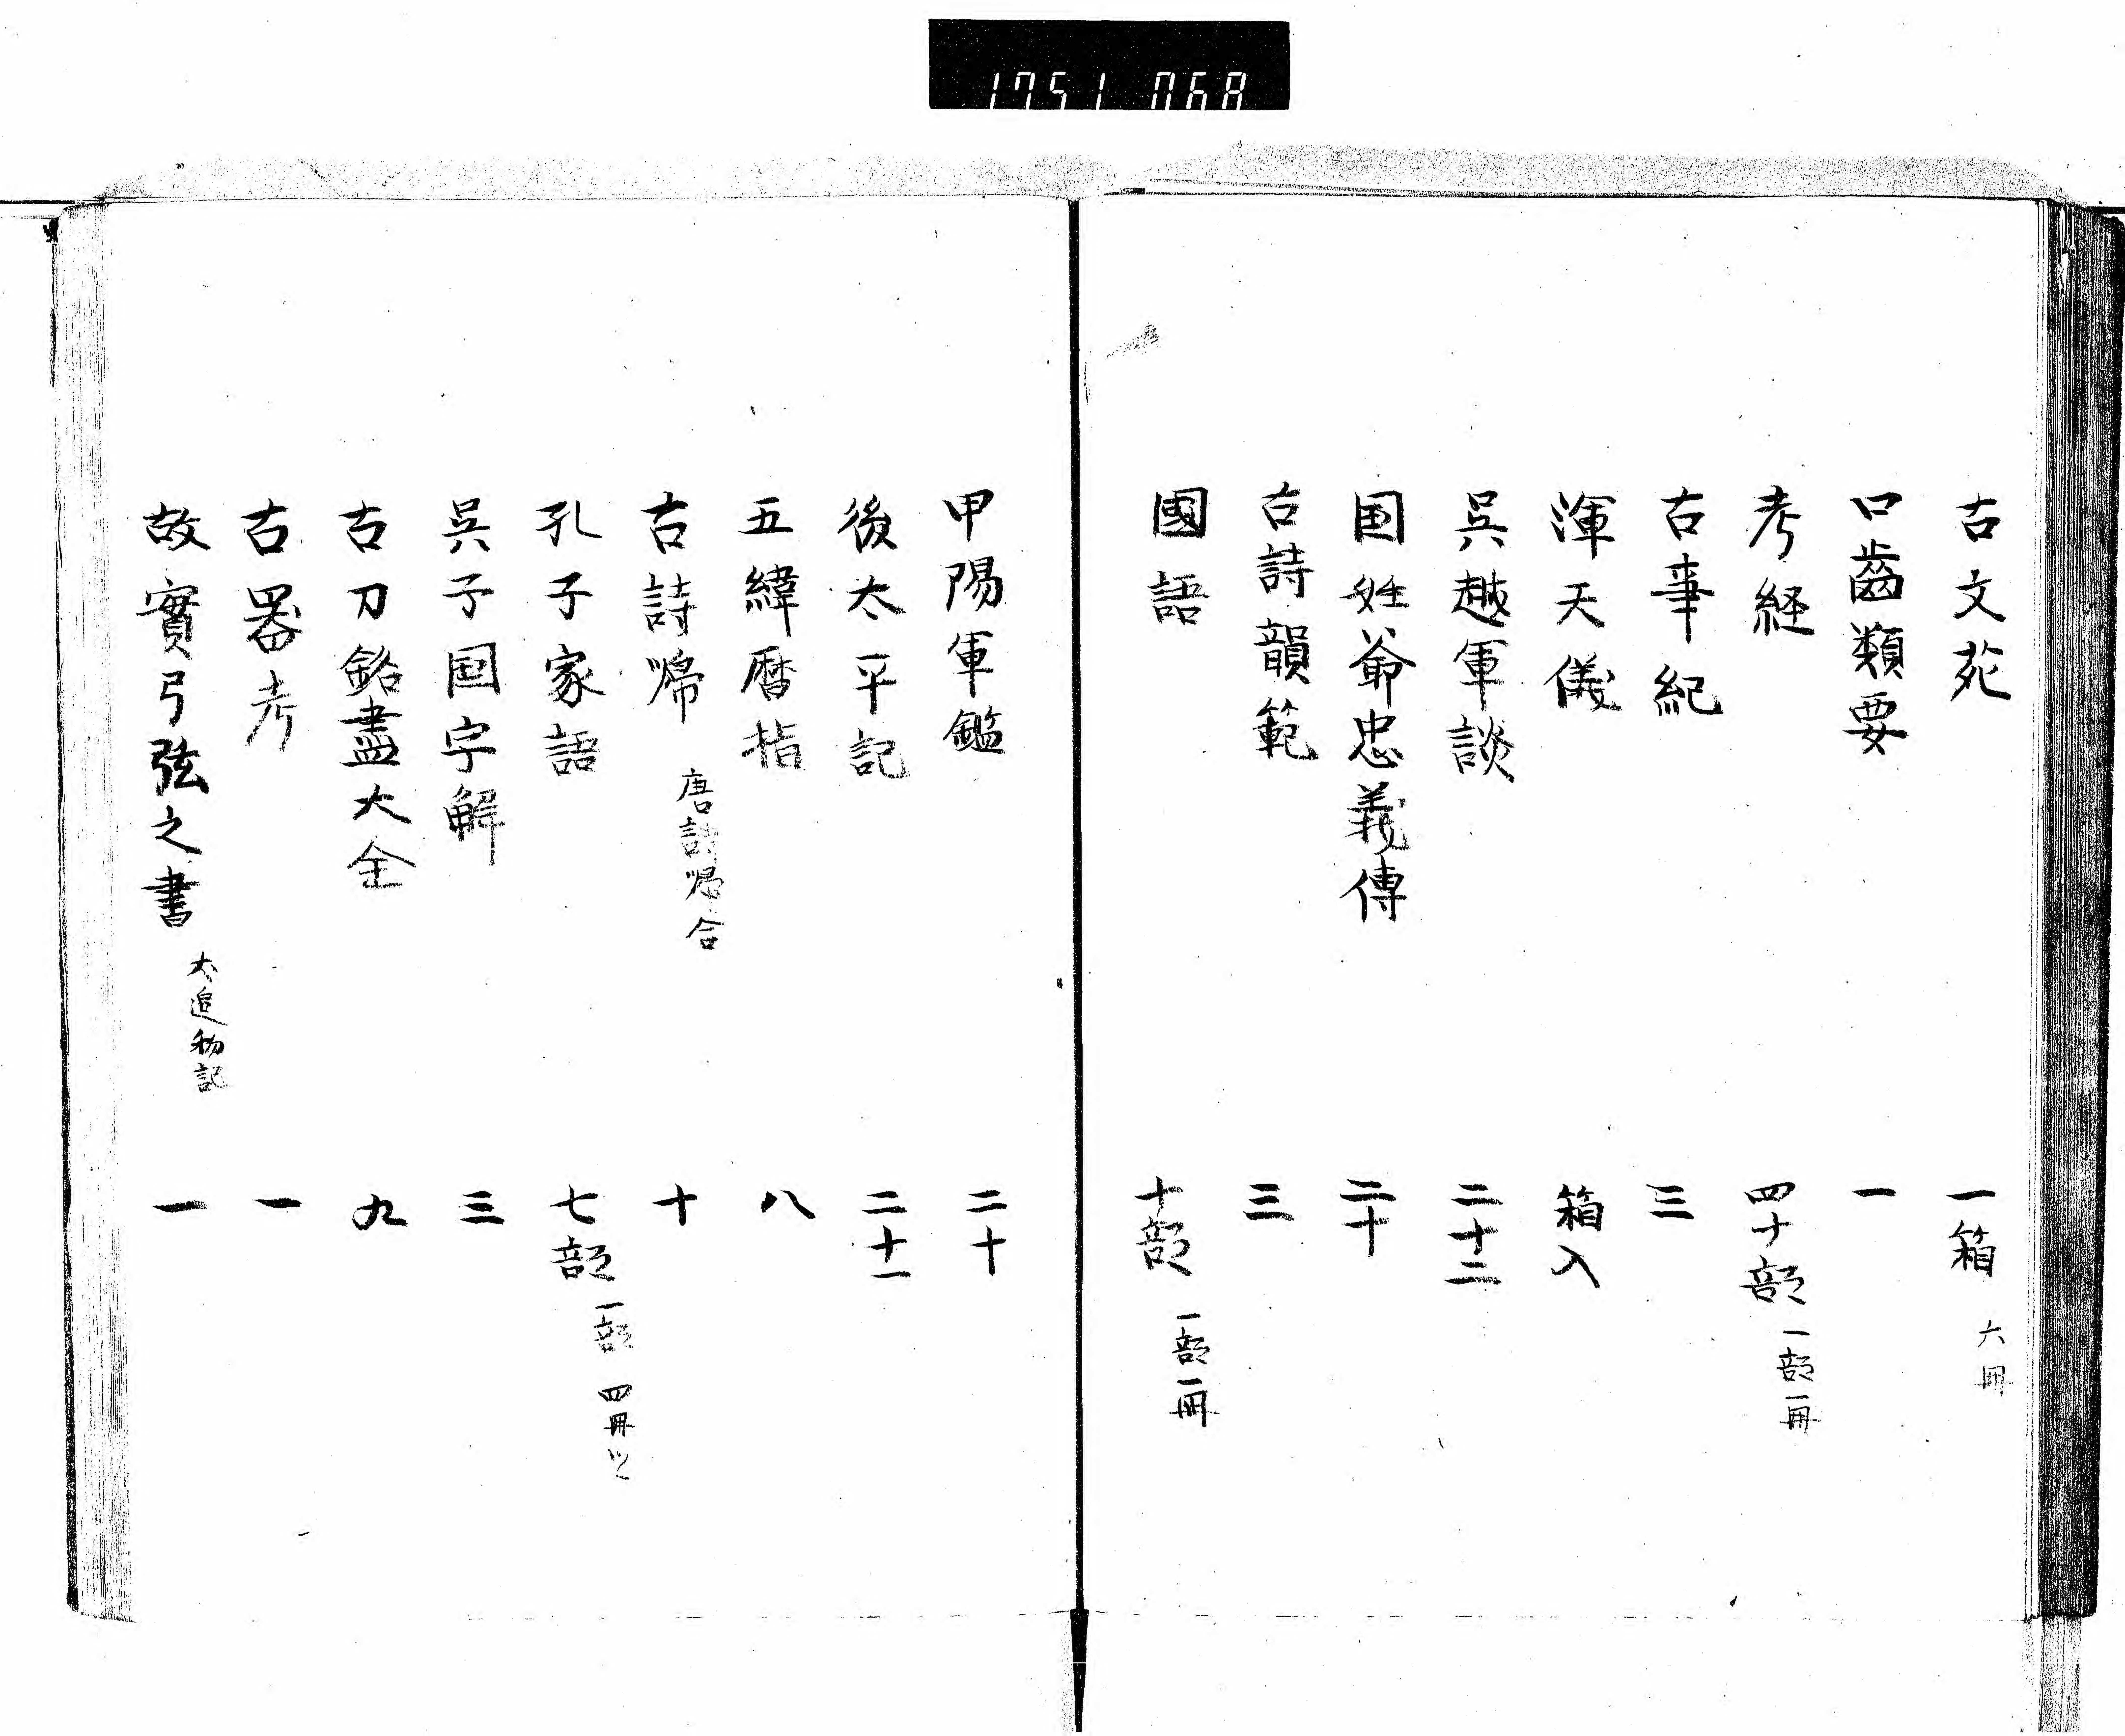 1751 068
古文苑 一箱 六冊
口齒類要 一
考経 四十部 一部一冊
古事紀 三
渾天儀 箱入
呉越軍談 二十二
国姓爺忠義傳 二十
古詩韻範 三
國語 十部 一部一冊
甲陽軍鑑 二十
後太平記 二十一
五緯暦指 八
古詩帰 唐詩帰合 十
孔子家語 七部 一部四冊ツヽ
呉子国字解 三
古刀銘盡大全 九
古器考 一
故實弓弦之書 犬追物記 一